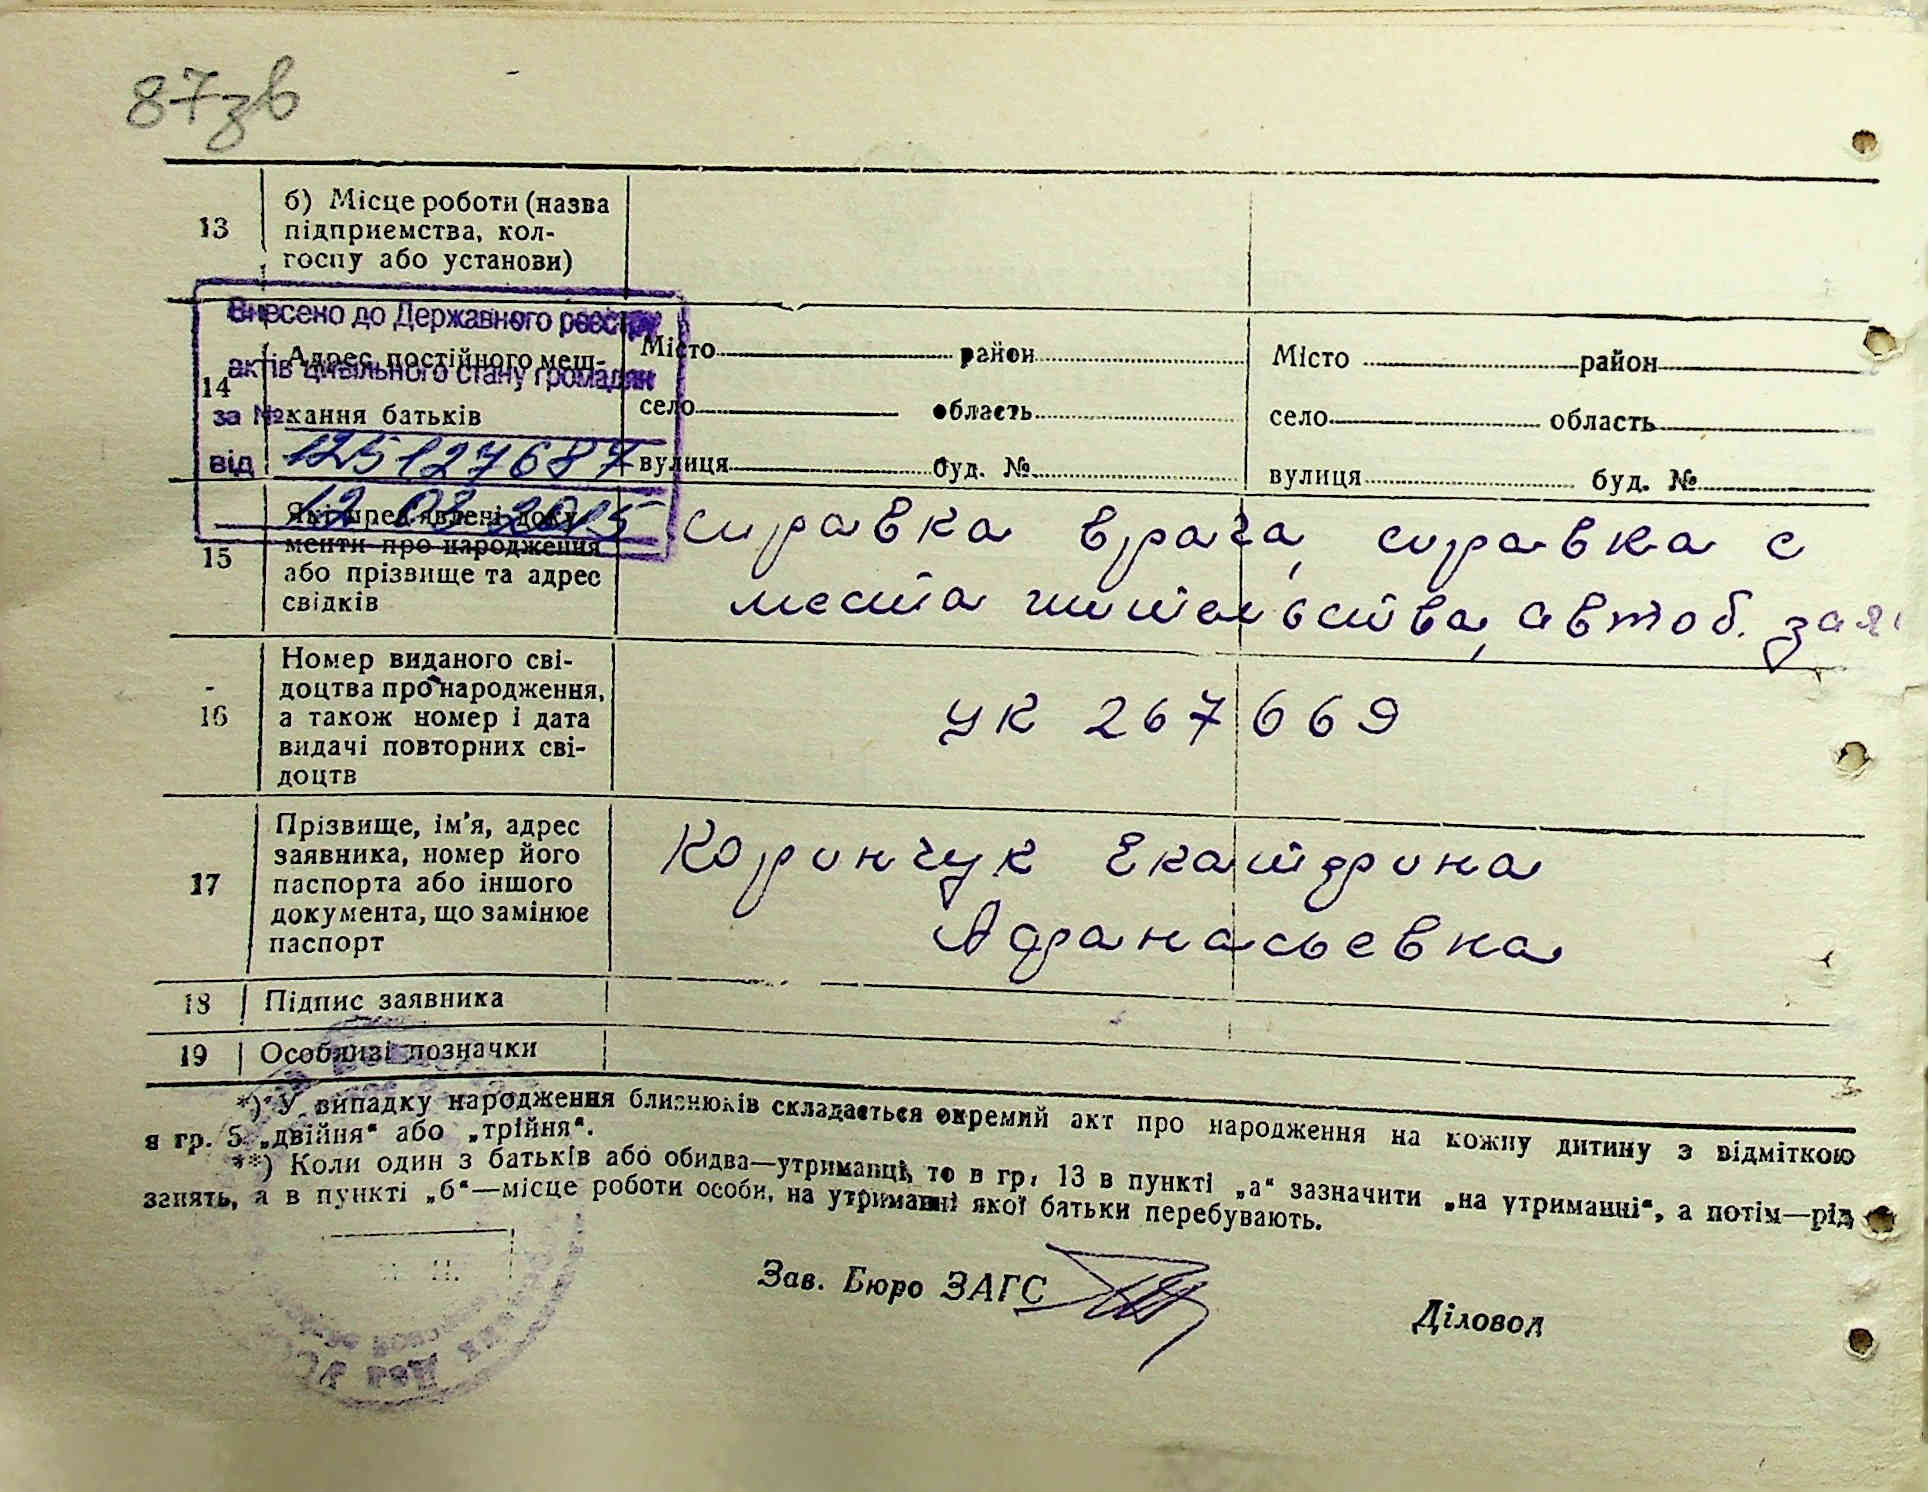 87зв
13
б) Місце роботи (назва
підприємства, кол-
госпу або установи)
Внесено до Державного реєстру
актів цивільного стану громадян
за №
125127687
від
12 03 2015
14
Адрес постійного меш-
кання батьків
Місто район
село область
вулиця буд. №
Місто район
село область
вулиця буд. №
15
Які пред'явлені доку-
менти про народження
або прізвище та адрес
свідків
справка врача, справка с
места жительства, автоб. зая
16
Номер виданого сві-
доцтва про народження,
а також номер і дата
видачі повторних сві-
доцтв
УК 267669
17
Прізвище, ім'я, адрес
заявника, номер його
паспорта або іншого
документа, що замінює
паспорт
Коринчук Екатерина
Афанасьевна
18 Підпис заявника
19 Особливі позначки
*) У випадку народження близнюків складається окремий акт про народження на кожну дитину з відміткою
в гр. 5 „двійня“ або „трійня“.
**) Коли один з батьків або обидва—утриманці, то в гр. 13 в пункті „а“ зазначити „на утриманні“, а потім—рід
занять, а в пункті „б“—місце роботи особи, на утриманні якої батьки перебувають.
Зав. Бюро ЗАГС
Діловод